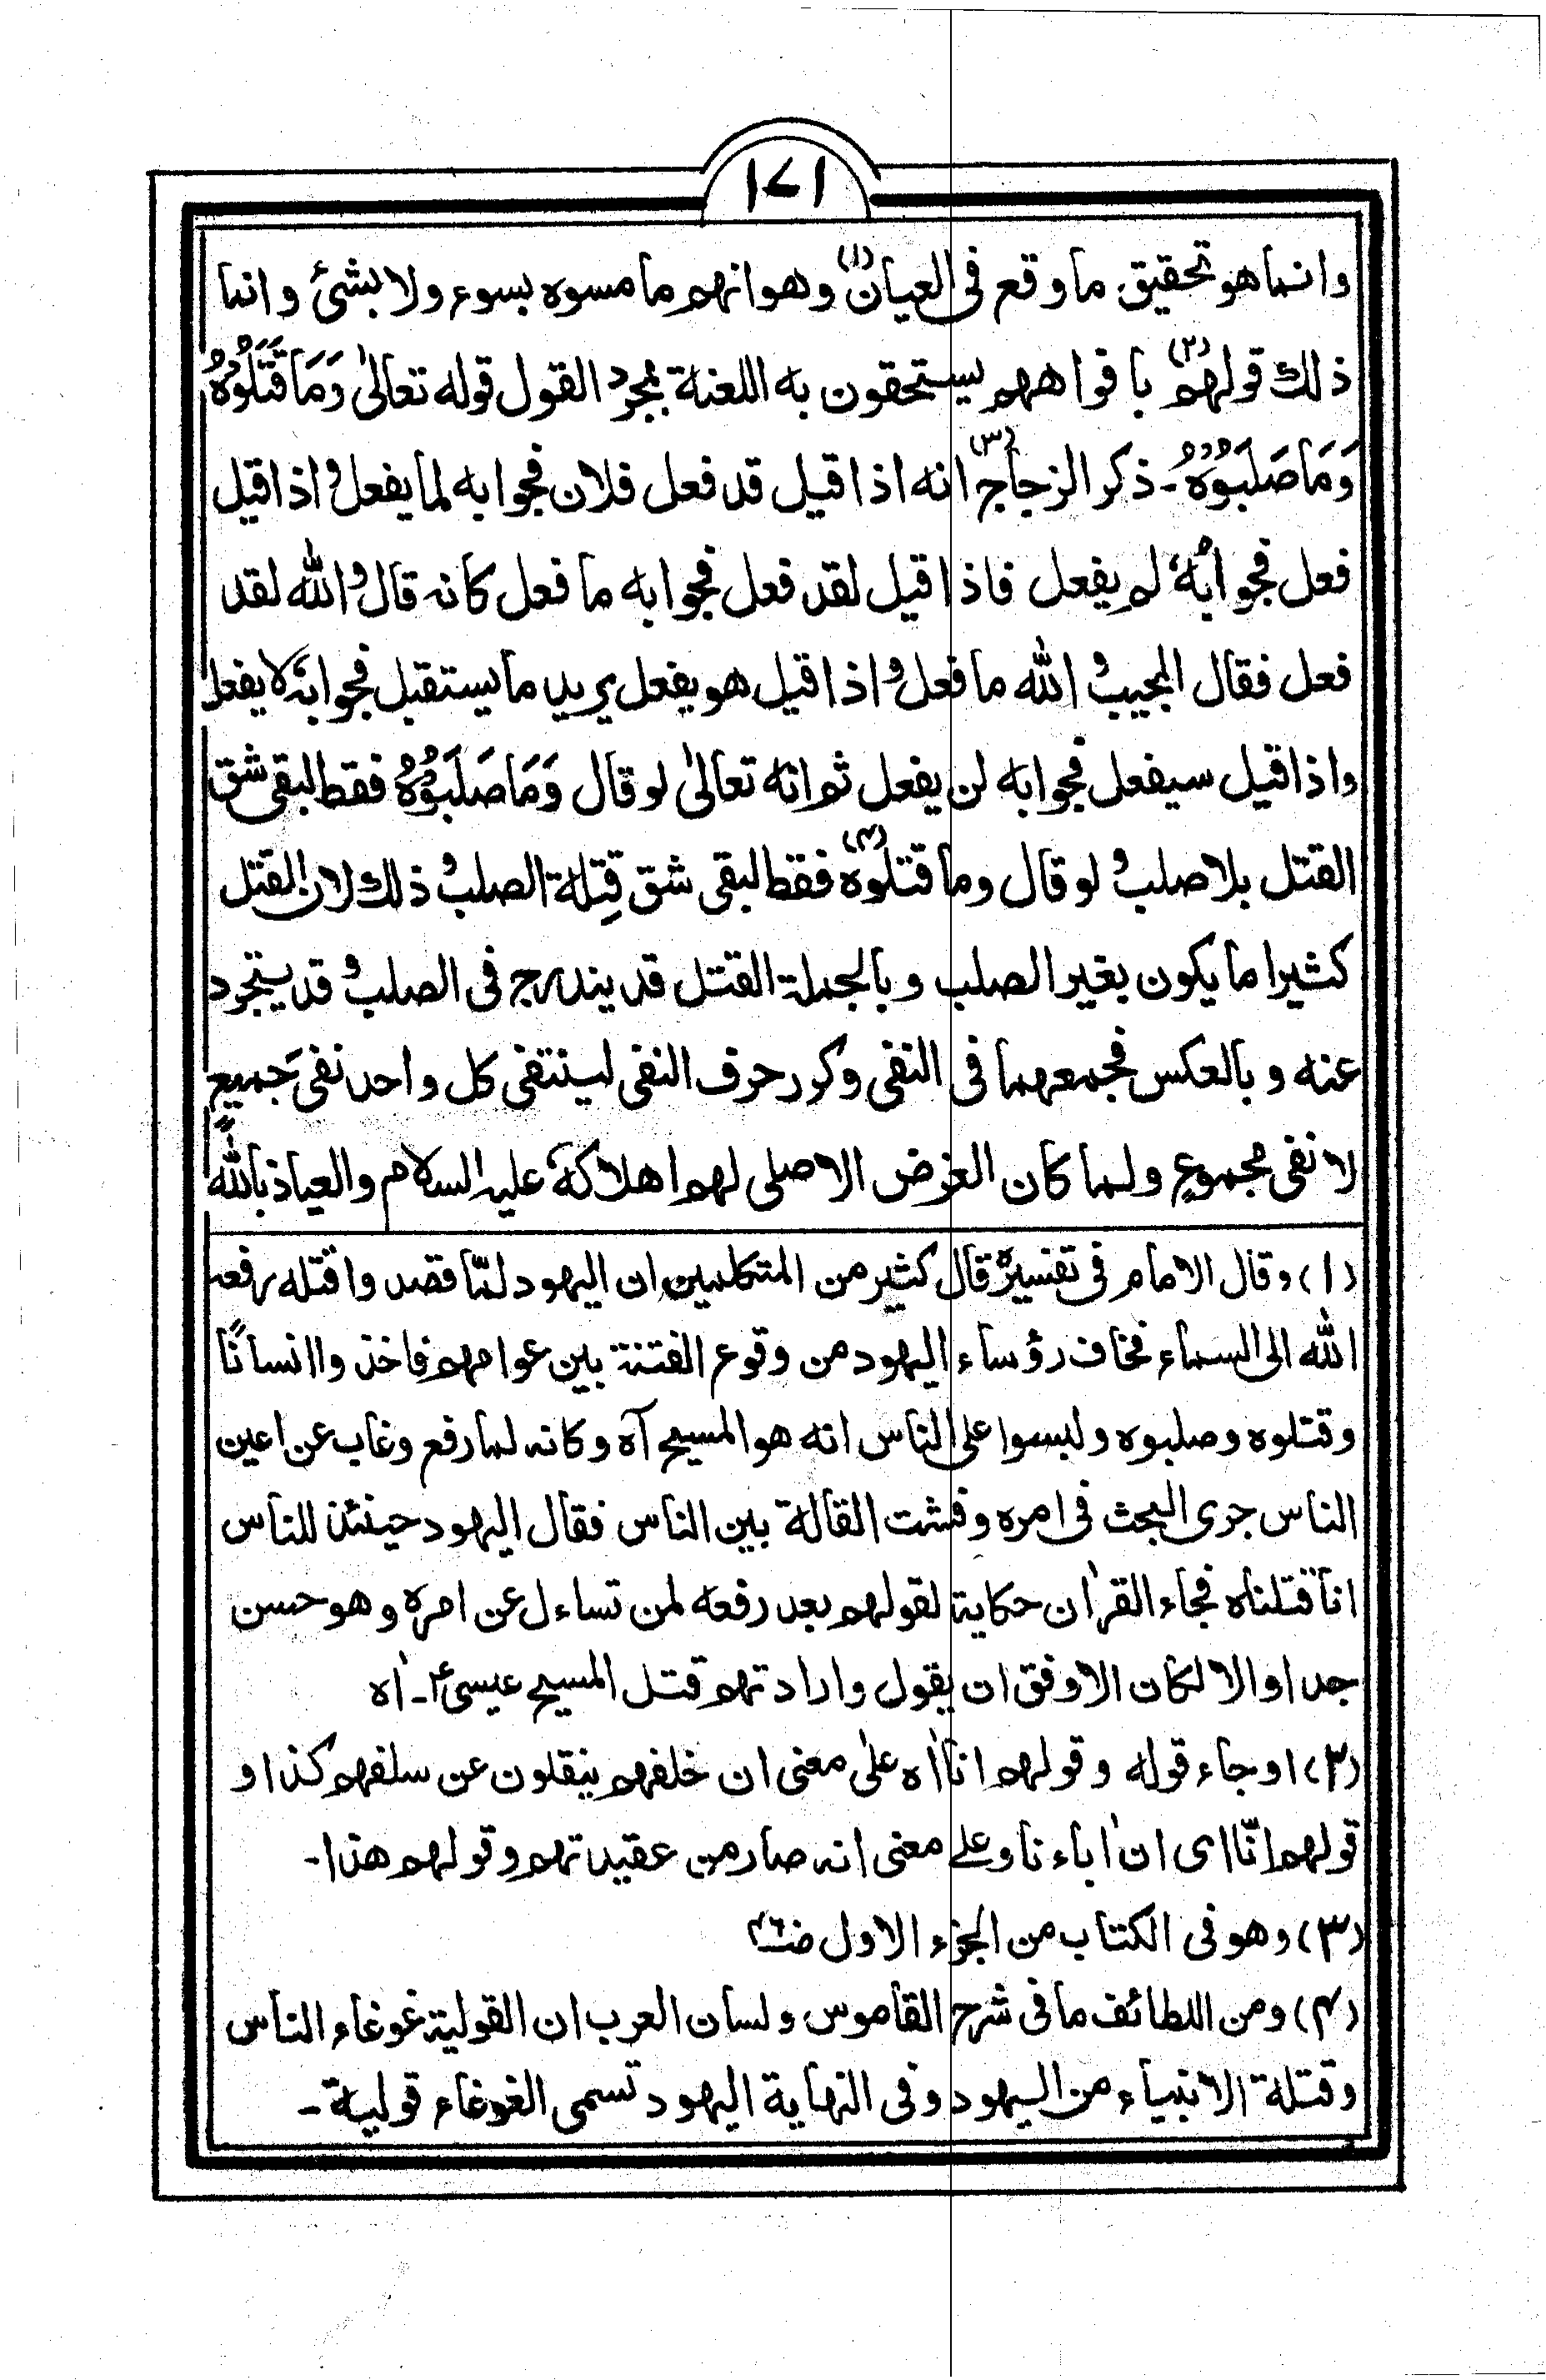 ١٧١
وانما هو تحقيق ما وقع فی العیان(١) وهو انهم ما مسوه بسوء ولا بشئ وانما
ذلك قولهم(٢) بافواههم يستحقون به اللعنة بمجرد القول قوله تعالیٰ وَمَا قَتَلُوْهُ
وَمَا صَلَبُوْهُ۔ ذكر الزجاج(٣) انه اذا قيل قد فعل فلان فجوابه لما يفعل واذا قيل
فعل فجوابهٗ لم يفعل فاذا قيل لقد فعل فجوابه ما فعل كانه قال والله لقد
فعل فقال المجيب والله ما فعل واذا قيل هو يفعل يريد ما يستقبل فجوابهٗ لا يفعل
واذا قيل سيفعل فجوابه لن يفعل ثم انه تعالیٰ لو قال وَمَا صَلَبُوْهُ فقط لبقی شق
القتل بلا صلب ولو قال وما قتلوه(٤) فقط لبقی شق قِتلة الصلب وذلك لان القتل
كثيرا ما يكون بغير الصلب وبالجملة القتل قد يندرج فی الصلب وقد يتجرد
عنه وبالعكس فجمعهما فی النفی وكرر حرف النفی لينتفی كل واحد نفی جَميعٍ
لا نفی مجموعٍ ولما كان الغرض الاصلی لهم اهلاكهٗ عليه السلام والعياذ بالله
(١) وقال الامام فی تفسيره قال كثير من المتكلمين ان اليهود لمّا قصدوا قتله رفعه
الله الی السماء فخاف رؤساء اليهود من وقوع الفتنة بين عوامهم فاخذوا انسانًا
وقتلوه وصلبوه ولبسوا علی الناس انه هو المسيح آه وكانه لما رفع وغاب عن اعين
الناس جری البحث فی امره وفشت القالة بين الناس فقال اليهود حينئذ للناس
انا قتلناه فجاء القراٰن حكاية لقولهم بعد رفعه لمن تساءل عن امره وهو حسن
جدا والا لكان الاوفق ان يقول وارادتهم قتل المسيح عيسیؑ۔ اٰه
(٢) او جاء قوله وقولهم انا اٰه علی معنی ان خلفهم ينقلون عن سلفهم كذا و
قولهم انّا ای ان اٰباءنا وعلے معنی انه صار من عقيدتهم وقولهم هذا۔
(٣) وهو فی الكتاب من الجزء الاول
(٤) ومن اللطائف ما فی شرح القاموس ولسان العرب ان القولية غوغاء الناس
وقتلة الانبياء من اليهود وفی النهاية اليهود تسمی الغوغاء قولية۔